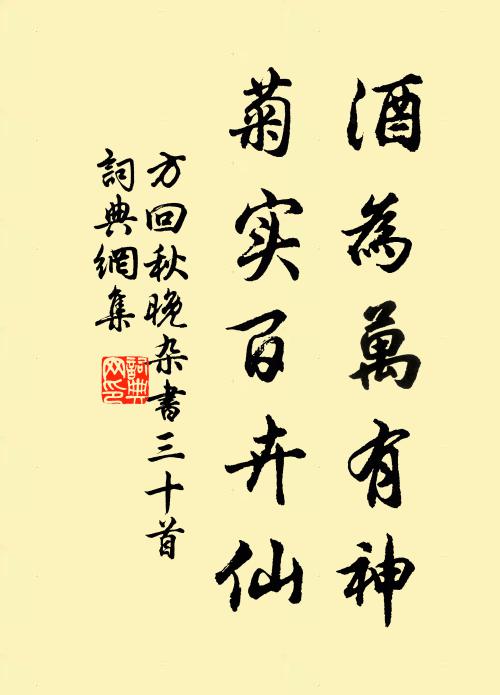 酒為萬有神
菊实百卉仙
方回秋晚杂書三十首
詞典網集
詞典網印